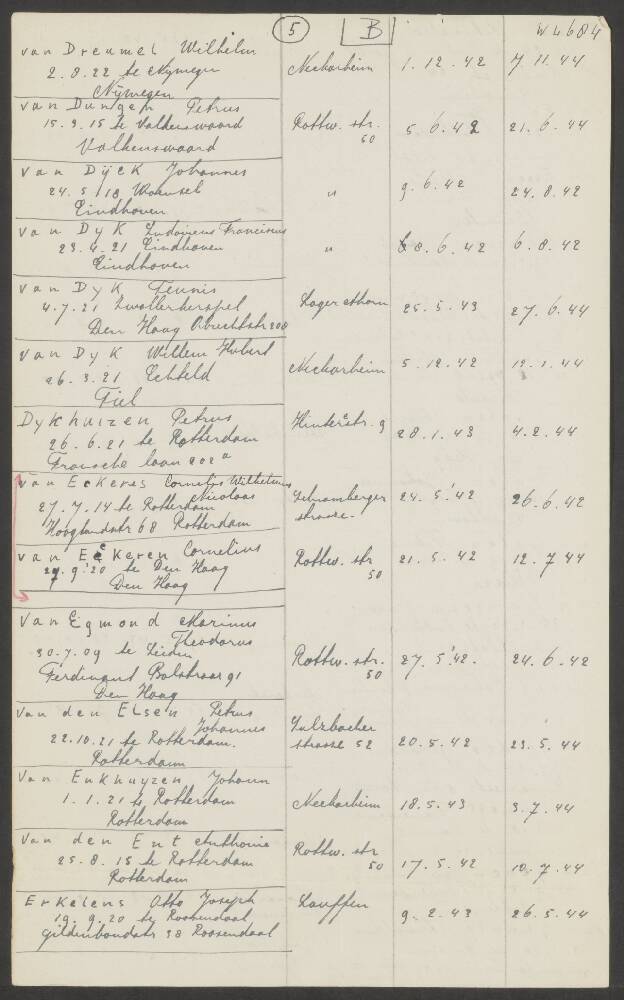 5 B W4684
van Dreumel Wilhelm
2.8.22 te Nymegen Neckarheim 1.12.42 7.11.44
Nijmegen
van Dungen Petrus
15.9.15 te Valkenswaard Rottw. str. 50 5.6.42 21.6.44
Valkenswaard
van Dijck Johannes
24.5.18 Woensel " 9.6.42 24.8.42
Eindhoven
van Dyk Ludovicus Franciscus
23.4.21 Eindhoven " 8.6.42 6.8.42
Eindhoven
van Dyk Teunis
4.7.21 Zwollerkerspel 25.5.43 27.6.44
Den Haag Obrechtstr 208
van Dyk Willem Hubert
26.3.21 Echteld Neckarheim 5.12.42 12.1.44
Tiel
Dykhuizen Petrus
26.6.21 te Rotterdam Hinterstr. 9 28.1.43 4.2.44
Fransche laan 202 a
van Eckeres Cornelis Wilhelmus
Nicolaas
27.7.14 te Rotterdam Schramberger 24.5.42 26.6.42
Hooglandstr 68 Rotterdam strasse.
van Eekeren Cornelius
te Den Haag Rottw. str 50 21.5.42 12.7.44
Den Haag
van Egmond Marinus
Theodorus
30.7.09 te Leiden Rottw. str. 50 27.5.42. 24.6.42
Ferdinand Bolstraat 91
Den Haag
van den Elsen Petrus
Johannes Sulzbacher
22.10.21 te Rotterdam. strasse 52 20.5.42 23.5.44
Rotterdam
van Enkhuyzen Johann
1.1.21 te Rotterdam Neckarheim 18.5.43 3.7.44
Rotterdam
van den Ent Anthonie
25.8.15 te Rotterdam Rottw. str 50 17.5.42 10.7.44
Rotterdam
Erkelens Otto Joseph
19.9.20 te Roosendaal Lauffen 9.2.43 26.5.44
Gildenbondstr 38 Roosendaal